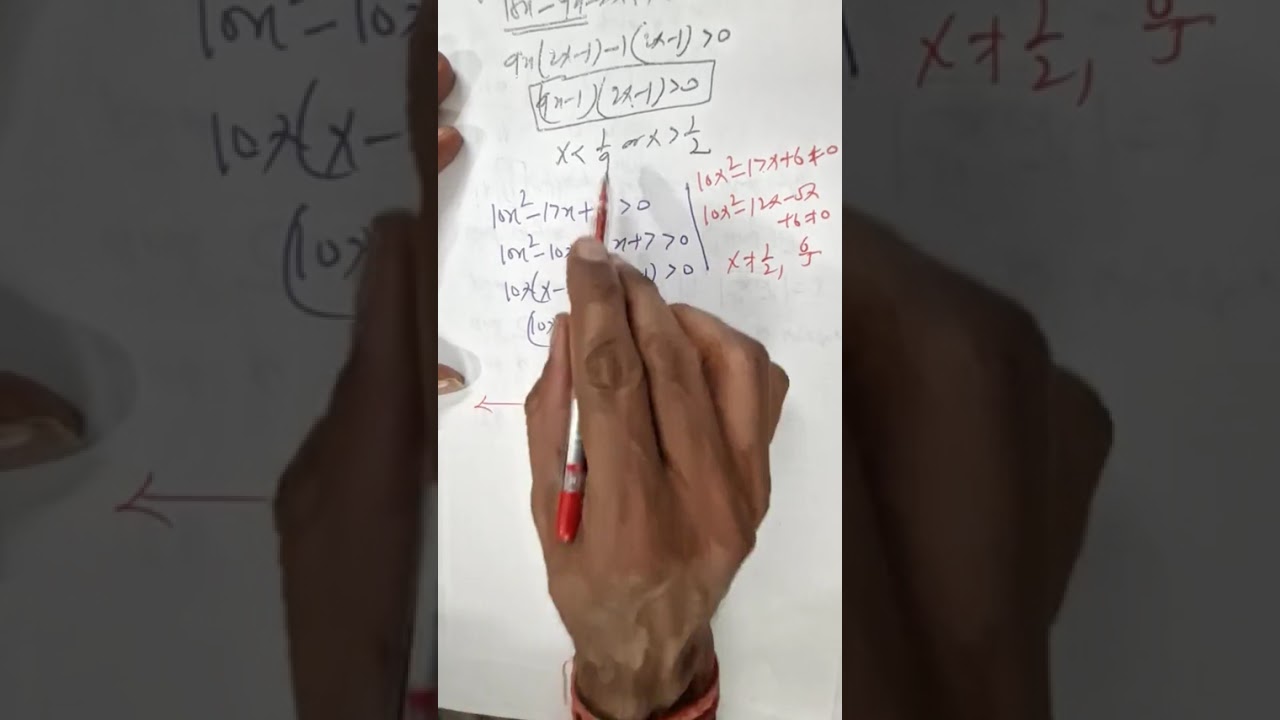 9x(2x-1)-1(2x-1)>0
(9x-1)(2x-1)>0
x<1/9 or x>1/2
10x²-17x+ >0
10x²-10x x+7>0
10x(x- 1)>0
(10x
10x²-17x+6≠0
10x²-12x-5x
+6≠0
x≠1/2, 6/5